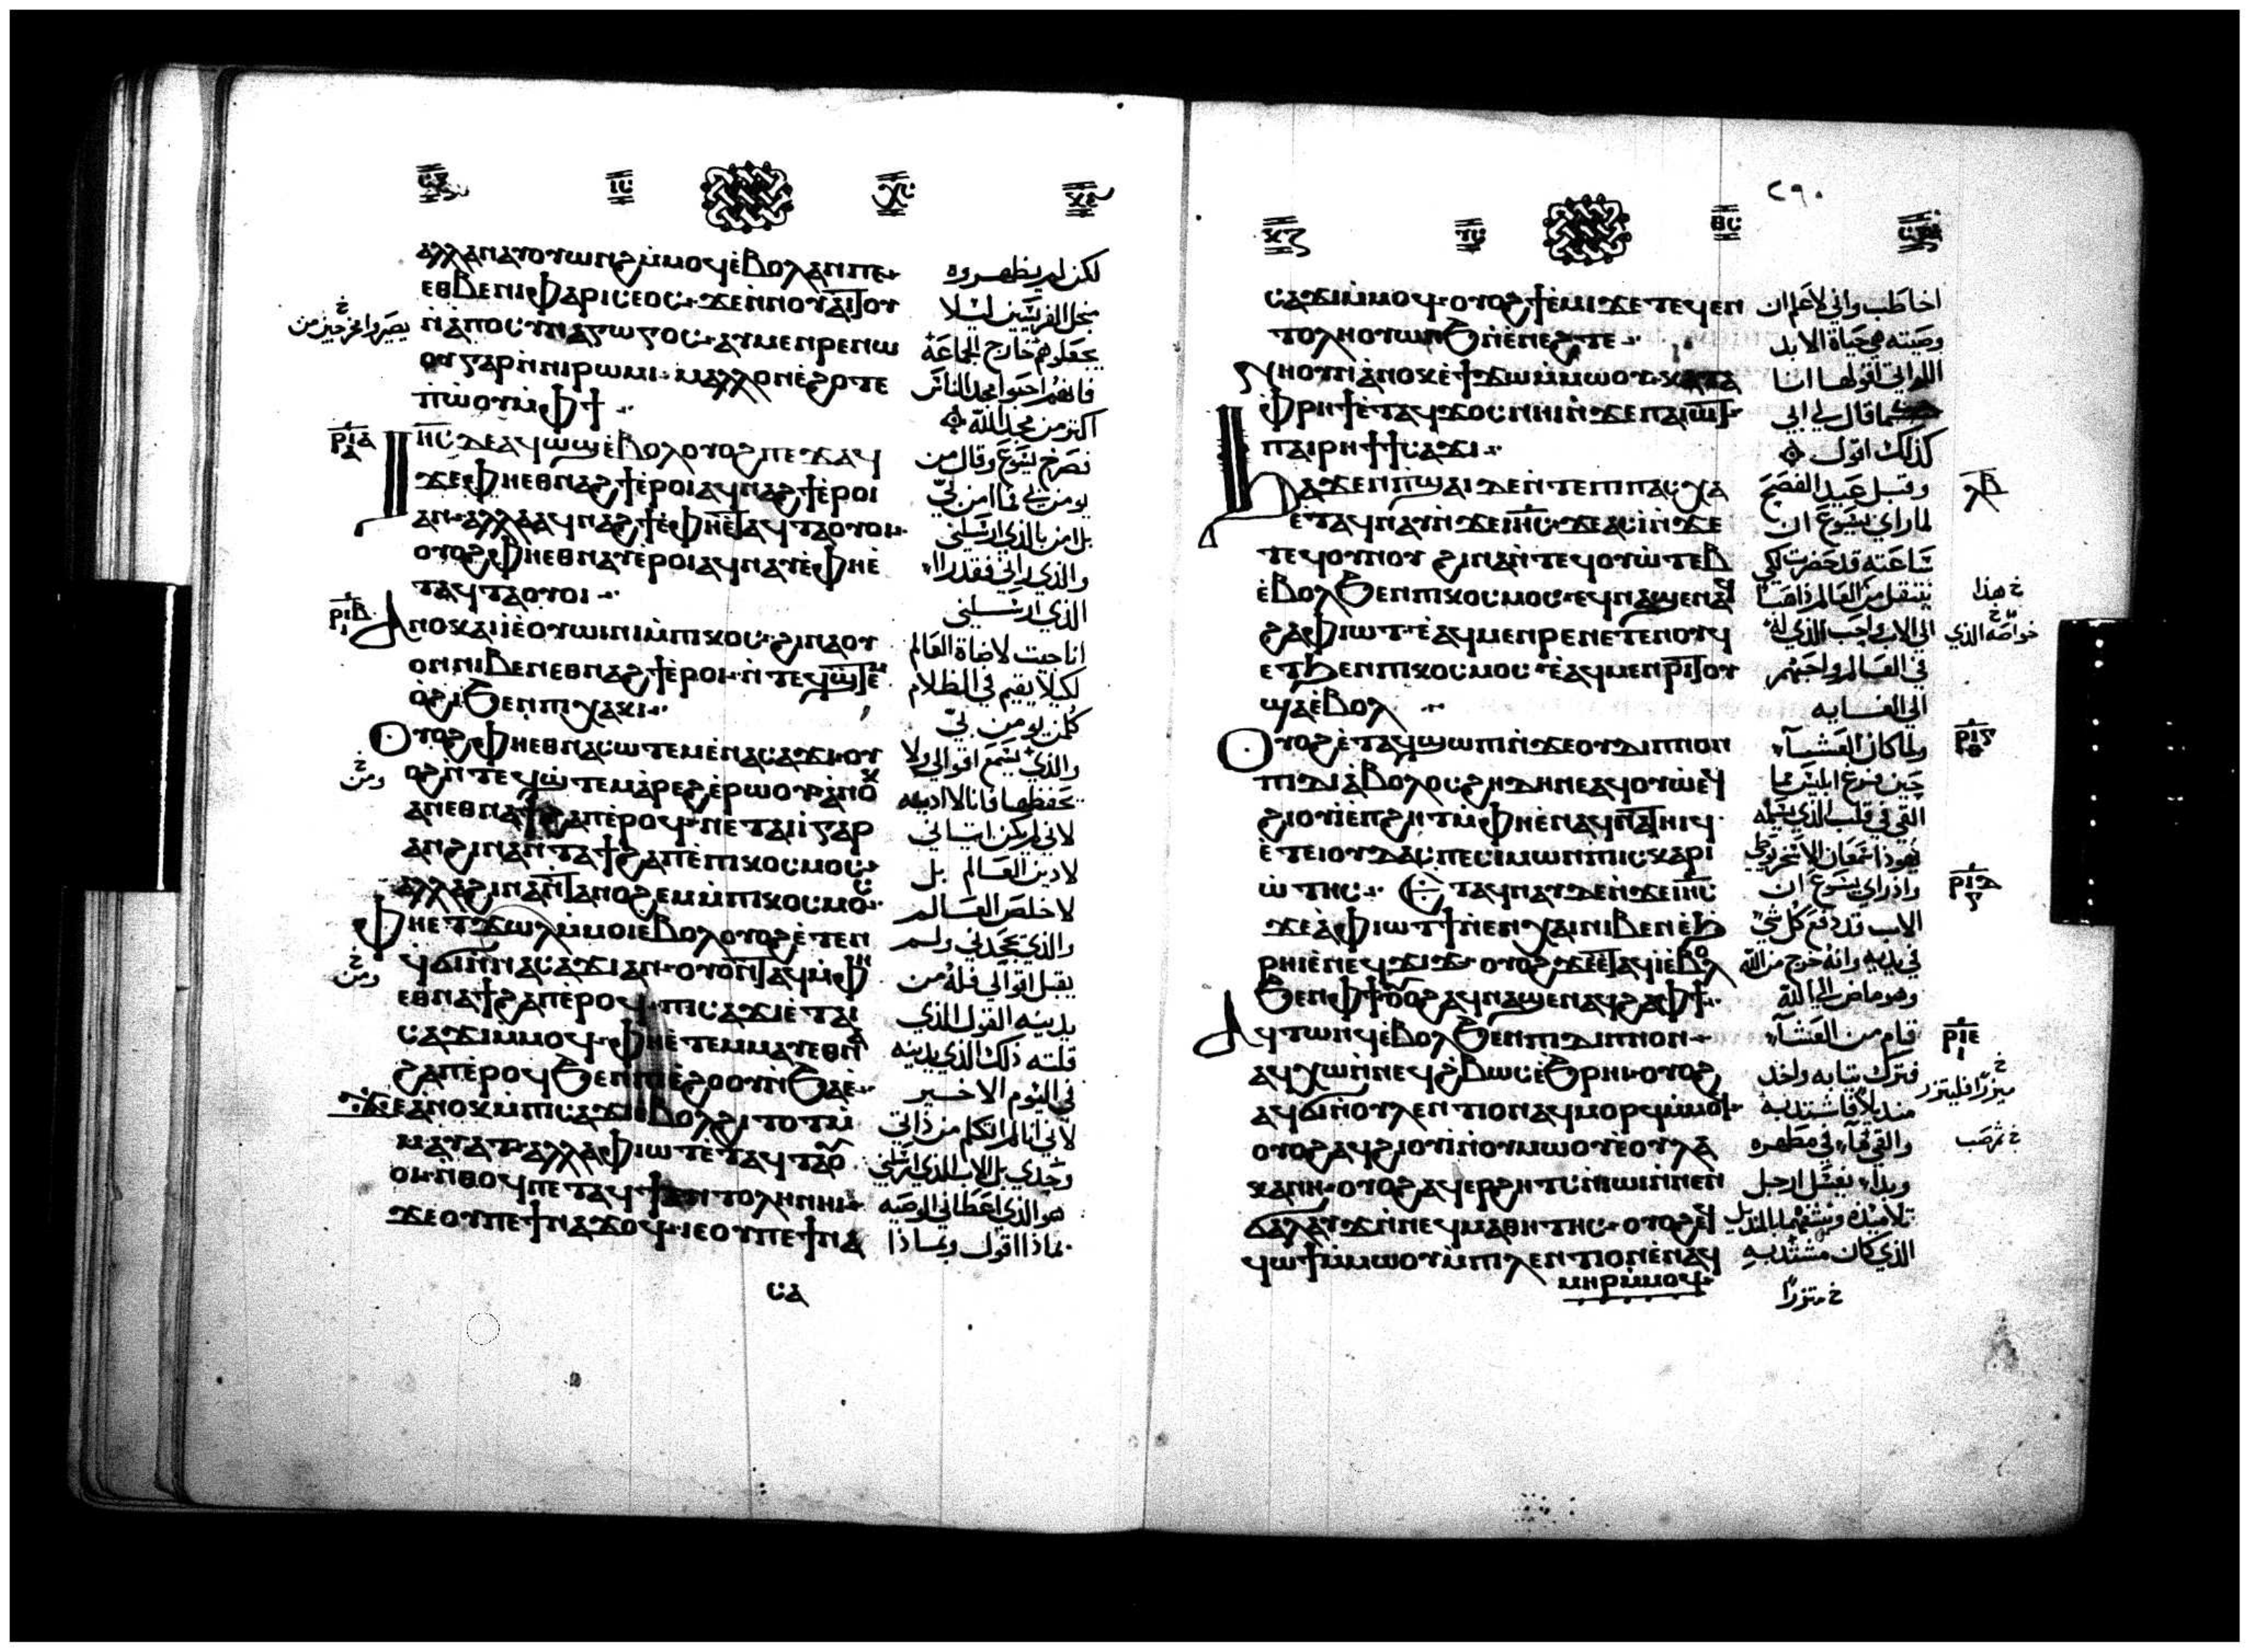 ⲓⲥ ⲭⲥ
ⲁⲗⲗⲁ ⲛⲁⲩⲟⲩⲱⲛϩ ⲙ̀ⲙⲟϥ ⲉ̀ⲃⲟⲗ ⲁⲛ ⲡⲉ
ⲉⲑⲃⲉ ⲛⲓⲫⲁⲣⲓⲥⲉⲟⲥ ϫⲉ ⲛ̀ⲛⲟⲩⲁⲓⲧⲟⲩ
ⲛ̀ⲁⲡⲟⲥⲩⲛⲁⲅⲱⲅⲟⲥ ⲁⲩⲙⲉⲛⲣⲉ ⲡⲱ
ⲟⲩ ⲅⲁⲣ ⲛ̀ⲛⲓⲣⲱⲙⲓ ⲙⲁⲗⲗⲟⲛ ⲉ̀ϩⲟⲧⲉ
ⲡ̀ⲱⲟⲩ ⲙ̀ⲫϯ
ⲣⲓⲁ
ⲓⲏⲥ ⲇⲉ ⲁϥⲱϣ ⲉ̀ⲃⲟⲗ ⲟⲩⲟϩ ⲡⲉϫⲁϥ
ϫⲉ ⲫⲏⲉⲑⲛⲁϩϯ ⲉ̀ⲣⲟⲓ ⲁϥⲛⲁϩϯ ⲉ̀ⲣⲟⲓ
ⲁⲛ ⲁⲗⲗⲁ ⲁϥⲛⲁϩϯ ⲉ̀ⲫⲏⲉ̀ⲧⲁϥⲧⲁⲟⲩⲟⲓ
ⲟⲩⲟϩ ⲫⲏⲉⲑⲛⲁⲩ ⲉⲣⲟⲓ ⲁϥⲛⲁⲩ ⲉ̀ⲫⲏⲉ̀
ⲧⲁϥⲧⲁⲟⲩⲟⲓ
ⲣⲓⲃ
ⲁⲛⲟⲕ ⲁⲓⲓ̀ ⲉ̀ⲟⲩⲱⲓⲛⲓ ⲙ̀ⲡⲓⲕⲟⲥ ϩⲓⲛⲁ ⲟⲩ
ⲟⲛ ⲛⲓⲃⲉⲛ ⲉⲑⲛⲁϩϯ ⲉ̀ⲣⲟⲓ ⲛ̀ⲧⲉϥϣⲧⲉⲙ
ⲟ̀ϩⲓ ϧⲉⲛ ⲡⲓⲭⲁⲕⲓ
ⲟⲩⲟϩ ⲫⲏⲉⲑⲛⲁⲥⲱⲧⲉⲙ ⲉ̀ⲛⲁⲥⲁϫⲓ ⲟⲩ
ⲟϩ ⲛ̀ⲧⲉϥϣ̀ⲧⲉⲙⲁ̀ⲣⲉϩ ⲉ̀ⲣⲱⲟⲩ ⲁⲛⲟⲕ
ⲁⲛ ⲉⲑⲛⲁϯϩⲁⲡ ⲉ̀ⲣⲟϥ ⲛⲉⲧⲁⲓⲓ̀ ⲅⲁⲣ
ⲁⲛ ϩⲓⲛⲁ ⲛ̀ⲧⲁϯϩⲁⲡ ⲉ̀ⲡⲓⲕⲟⲥⲙⲟⲥ
ⲁⲗⲗⲁ ϩⲓⲛⲁ ⲛ̀ⲧⲁⲛⲟϩⲉⲙ ⲙ̀ⲡⲓⲕⲟⲥⲙⲟⲥ
ⲫⲏⲉⲧϫⲱⲗ ⲙ̀ⲙⲟⲓ ⲉⲃⲟⲗ ⲟⲩⲟϩ ⲉ̀ⲧⲉⲛ
ϥϭⲓ ⲛ̀ⲛⲁⲥⲁϫⲓ ⲁⲛ ⲟⲩⲟⲛⲧⲁϥ ⲙ̀ⲫⲏ
ⲉⲑⲛⲁϯϩⲁⲡ ⲉ̀ⲣⲟϥ ⲡⲓⲥⲁϫⲓ ⲉ̀ⲧⲁⲓ
ⲥⲁϫⲓ ⲙ̀ⲙⲟϥ ⲫⲏⲉ̀ⲧⲉⲙⲙⲁⲩ ⲉⲑⲛⲁϯ
ϩⲁⲡ ⲉ̀ⲣⲟϥ ϧⲉⲛ ⲡⲓⲉ̀ϩⲟⲟⲩ ⲛ̀ϧⲁⲉ̀
ϫⲉ ⲁ̀ⲛⲟⲕ ⲙ̀ⲡⲓⲥⲁϫⲓ ⲉ̀ⲃⲟⲗ ϩⲓⲧⲟⲧ ⲙ̀
ⲙⲁⲩⲁⲧ ⲁⲗⲗⲁ ⲫⲓⲱⲧ ⲉ̀ⲧⲁϥⲧⲁⲟⲩ
ⲟⲓ ⲛ̀ⲑⲟϥ ⲡⲉⲧⲁϥϯⲉⲛⲧⲟⲗⲏ ⲛⲏⲓ
ϫⲉ ⲟⲩ ⲡⲉϯⲛⲁϫⲟϥ ⲓⲉ ⲟⲩ ⲡⲉϯⲛⲁ
ⲥⲁ
لكن لم يظهروه
بجل الفريسيين ليلا
يجعلوهم خارج الجماعة
فانهم احبوا مجد الناس
اكثر من مجد الله
فصرخ يسوع وقال من
يومن بي فما امن بي
بل امن بالذي ارسلني
والذي راني فقد راا
الذي ارسلني
انا جيت لاضاة العالم
لكيلا يقيم في الظلام
كلمن يومن بي
والذي يسمع اقوالي ولا
يحفظها فانا لا ادينه
لاني لم يكن اتياني
لادين العالم بل
لاخلص العالم
والذي يجحدني ولم
يقبل اقوالي فله من
يدينه القول الذي
قلته ذلك الذي يدينه
في اليوم الاخير
لاني انا لم اتكلم من ذاتي
وحدي بل الاب الذي ارسلني
هو الذي اعطاني الوصيه
بماذا اقول وبماذا
ومن
ومن
٢٩٠
ⲥⲁϫⲓ ⲙ̀ⲙⲟϥ ⲟⲩⲟϩ ϯⲉ̀ⲙⲓ ϫⲉ ⲧⲉϥⲉⲛ
ⲧⲟⲗⲏ ⲟⲩⲱⲛϧ ⲛ̀ⲉⲛⲉϩ ⲧⲉ
ⲛⲏ ⲟⲩⲛ ⲁ̀ⲛⲟⲕ ⲉ̀ϯϫⲱ ⲙ̀ⲙⲱⲟⲩ ⲕⲁⲧⲁ
ⲫⲣⲏϯ ⲉ̀ⲧⲁϥϫⲟⲥ ⲛⲏⲓ ⲛ̀ϫⲉ ⲡⲁⲓⲱⲧ
ⲡⲁⲓⲣⲏϯ ϯⲥⲁϫⲓ
ϧⲁϫⲉⲛ ⲡ̀ϣⲁⲓ ⲇⲉ ⲛ̀ⲧⲉ ⲡⲓⲡⲁⲥⲭⲁ
ⲉ̀ⲧⲁϥⲛⲁⲩ ⲛ̀ϫⲉ ⲓⲏⲥ ϫⲉ ⲁⲥⲓ̀ ⲛ̀ϫⲉ
ⲧⲉϥⲟⲩⲛⲟⲩ ϩⲓⲛⲁ ⲛ̀ⲧⲉϥⲟⲩⲱ̀ⲧⲉⲃ
ⲉ̀ⲃⲟⲗ ϧⲉⲛ ⲡⲓⲕⲟⲥⲙⲟⲥ ⲉϥⲛⲁϣⲉⲛⲁϥ
ϩⲁ ⲫⲓⲱⲧ ⲉ̀ⲁϥⲙⲉⲛⲣⲉ ⲛⲉⲧⲉⲛⲟⲩϥ
ⲉⲧϧⲉⲛ ⲡⲓⲕⲟⲥⲙⲟⲥ ⲉ̀ⲁϥⲙⲉⲛⲣⲓⲧⲟⲩ
ϣⲁ ⲉ̀ⲃⲟⲗ
ⲟⲩⲟϩ ⲉ̀ⲧⲁϥϣⲱⲡⲓ ⲛ̀ϫⲉ ⲟⲩⲇⲓⲡⲛⲟⲛ
ⲡⲓⲇⲓⲁ̀ⲃⲟⲗⲟⲥ ϩⲏⲇⲏ ⲛⲉⲁϥⲟⲩⲱ ⲉϥ
ϩⲓⲟⲩⲓ̀ ⲉ̀ⲡϩⲏⲧ ⲙ̀ⲫⲏⲉ̀ⲛⲁϥⲛⲁⲧⲏⲓϥ
ⲉ̀ⲧⲉ ⲓⲟⲩⲇⲁⲥ ⲡⲉ ⲥⲓⲙⲱⲛ ⲡⲓⲥⲕⲁⲣⲓ
ⲱ̀ⲧⲏⲥ ⲉⲧⲁϥⲛⲁⲩ ⲇⲉ ⲛ̀ϫⲉ ⲓⲏⲥ
ϫⲉ ⲁ̀ ⲫⲓⲱⲧ ϯ ⲛ̀ⲉⲛⲭⲁⲓ ⲛⲓⲃⲉⲛ ⲉ̀ϧ
ⲣⲏⲓ ⲉ̀ⲛⲉϥϫⲓϫ ⲟⲩⲟϩ ϫⲉ ⲉⲧⲁϥⲓ̀ ⲉⲃⲟⲗ
ϧⲉⲛ ⲫϯ ⲟⲩⲟϩ ⲁϥⲛⲁϣⲉⲛⲁϥ ϩⲁ ⲫϯ
ⲁϥⲧⲱⲛϥ ⲉ̀ⲃⲟⲗ ϧⲉⲛ ⲡⲓⲇⲓⲡⲛⲟⲛ
ⲁϥⲭⲱ ⲛ̀ⲛⲉϥϩ̀ⲃⲱⲥ ⲉ̀ϧⲣⲏⲓ ⲟⲩⲟϩ
ⲁϥϭⲓ ⲛ̀ⲟⲩⲗⲉⲛⲧⲓⲟⲛ ⲁϥⲙⲟⲣϥ ⲙ̀ⲙⲟϥ
ⲟⲩⲟϩ ⲁϥϩⲓⲟⲩⲓ̀ ⲛ̀ⲟⲩⲙⲱⲟⲩ ⲉ̀ⲟⲩⲗⲁ
ⲕⲁⲛⲏ ⲟⲩⲟϩ ⲁϥⲉⲣϩⲏⲧⲥ ⲛ̀ⲓⲱⲓ ⲛ̀ⲛⲉⲛ
ϭⲁⲗⲁⲩϫ ⲛ̀ⲛⲉϥⲙⲁⲑⲏⲧⲏⲥ ⲟⲩⲟϩ ⲉϥ
ϥⲱϯ ⲙ̀ⲙⲱⲟⲩ ⲙ̀ⲡⲓⲗⲉⲛⲧⲓⲟⲛ ⲉ̀ⲛⲁϥ
ⲙⲏⲣ ⲙ̀ⲙⲟϥ
اخاطب واني لاعلم ان
وصيته هي حياة الابد
التي اقولها انا
كما قال لي ابي
كذلك اقول
وقبل عيد الفصح
لما راي يسوع ان
ساعته قد حضرت لكي
ينتقل من العالم ذاهبا
الى الاب واحب الذي له
في العالم واحبهم
الي الغايه
ولما كان العشاء
حين فرغ ابليس مما
القي في قلب الذي يسلمه
يهوذا سمعان الاسخريوطي
واذ راي يسوع ان
الاب قد دفع كل شي
في يديه وانه خرج من الله
وهو ماض الي الله
قام من العشاء
فترك ثيابه واخذ
منديلا فاشتد به
والقي ماء في مطهره
وبداء يغسل ارجل
تلاميذه وينشفهما بالمنديل
الذي كان مشتد به
خ هذا
خ متزرا
ⲣⲓⲅ
ⲣⲓⲇ
ⲣⲓⲉ